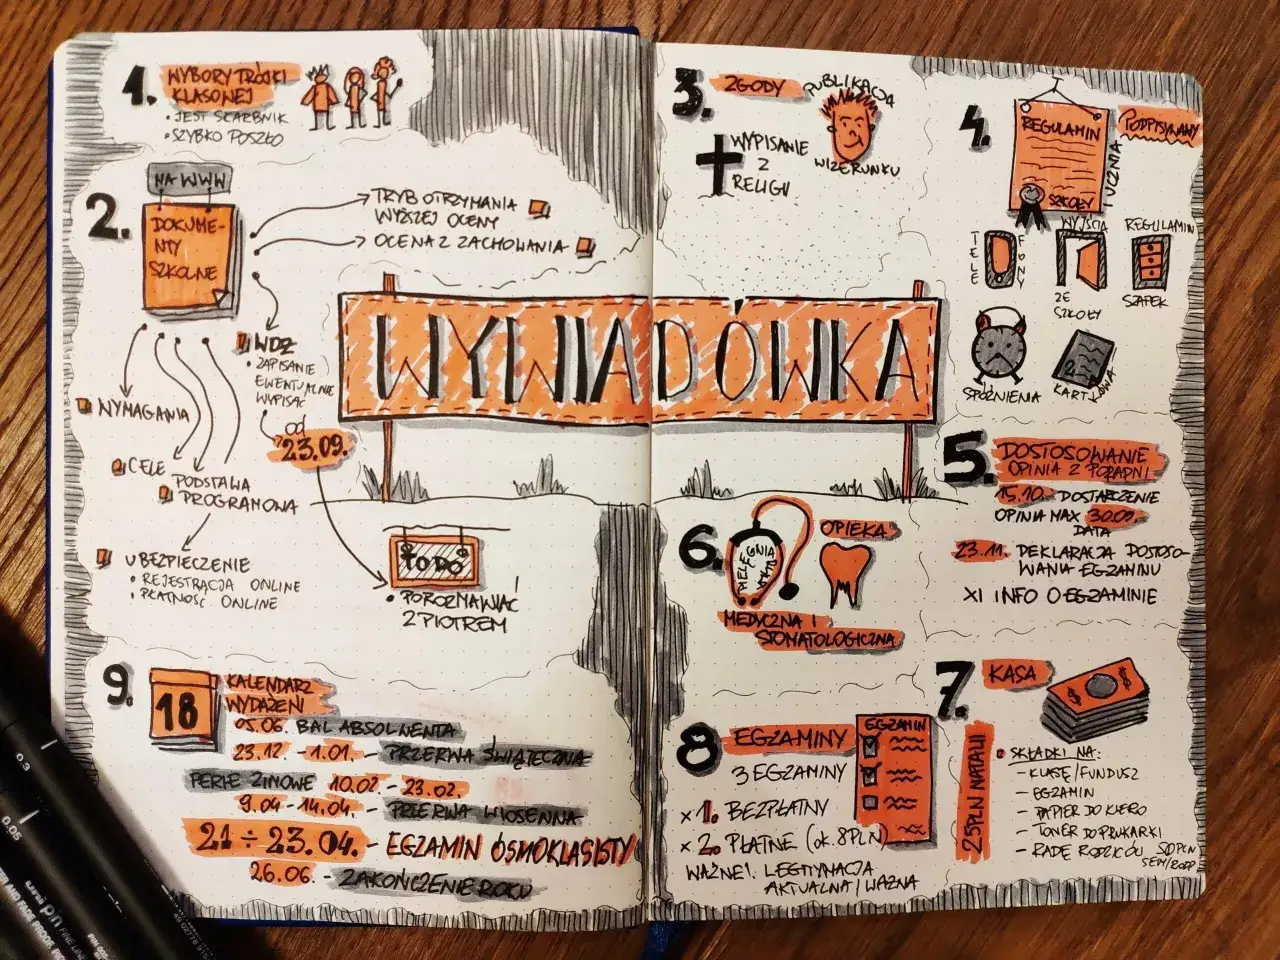 WYWIADÓWKA
1. WYBORY TRÓJKI
KLASOWEJ
• JEST SKARBNIK
• SZYBKO POSZŁO
2. NA WWW
DOKUME-
NTY
SZKOLNE
TRYB OTRZYMANIA
WYŻSZEJ OCENY
OCENA Z ZACHOWANIA
WDŻ
• ZAPISANIE
EWENTUALNIE
WYPISAĆ
OD
23.09.
WYMAGANIA
CELE
PODSTAWA
PROGRAMOWA
UBEZPIECZENIE
• REJESTRACJA ONLINE
• PŁATNOŚĆ ONLINE
TO DO
• POROZMAWIAĆ
Z PIOTREM
3. ZGODY
PUBLIKACJA
WIZERUNKU
WYPISANIE
Z
RELIGII
4. REGULAMIN
SZKOŁY
UCZNIA
PODPISYWANY
TELE
FONY
WYJŚCIA
ZE
SZKOŁY
REGULAMIN
SZAFEK
SPÓŹNIENIA
KARTKÓWKA
5. DOSTOSOWANIE
OPINIA Z PORADNI
15.10. DOSTARCZENIE
OPINIA MAX 30.09.
DATA
23.11. DEKLARACJA DOSTOSO-
WANIA EGZAMINU
XI INFO O EGZAMINIE
6. PIELĘGNIARKA
OPIEKA
MEDYCZNA I
STOMATOLOGICZNA
7. KASA
25PLN NATALII
SKŁADKI NA:
– KLASĘ/FUNDUSZ
– EGZAMIN
– PAPIER DO KSERO
– TONER DO DRUKARKI
– RADĘ RODZICÓW 50PLN
SEM/200
8 EGZAMINY
EGZAMIN
3 EGZAMINY
x 1. BEZPŁATNY
x 2. PŁATNE (ok. 8PLN)
WAŻNE! LEGITYMACJA
AKTUALNA/WAŻNA
9. 18
KALENDARZ
WYDAŻENÍ
05.06. BAL ABSOLWENTA
23.12. - 1.01. - PRZERWA ŚWIĄTECZNA
FERIE ZIMOWE 10.02 - 23.02.
9.04 - 14.04. - PRZERWA WIOSENNA
21 ÷ 23.04. - EGZAMIN ÓSMOKLASISTY
26.06. - ZAKOŃCZENIE ROKU
0.3
0.05
uni pin